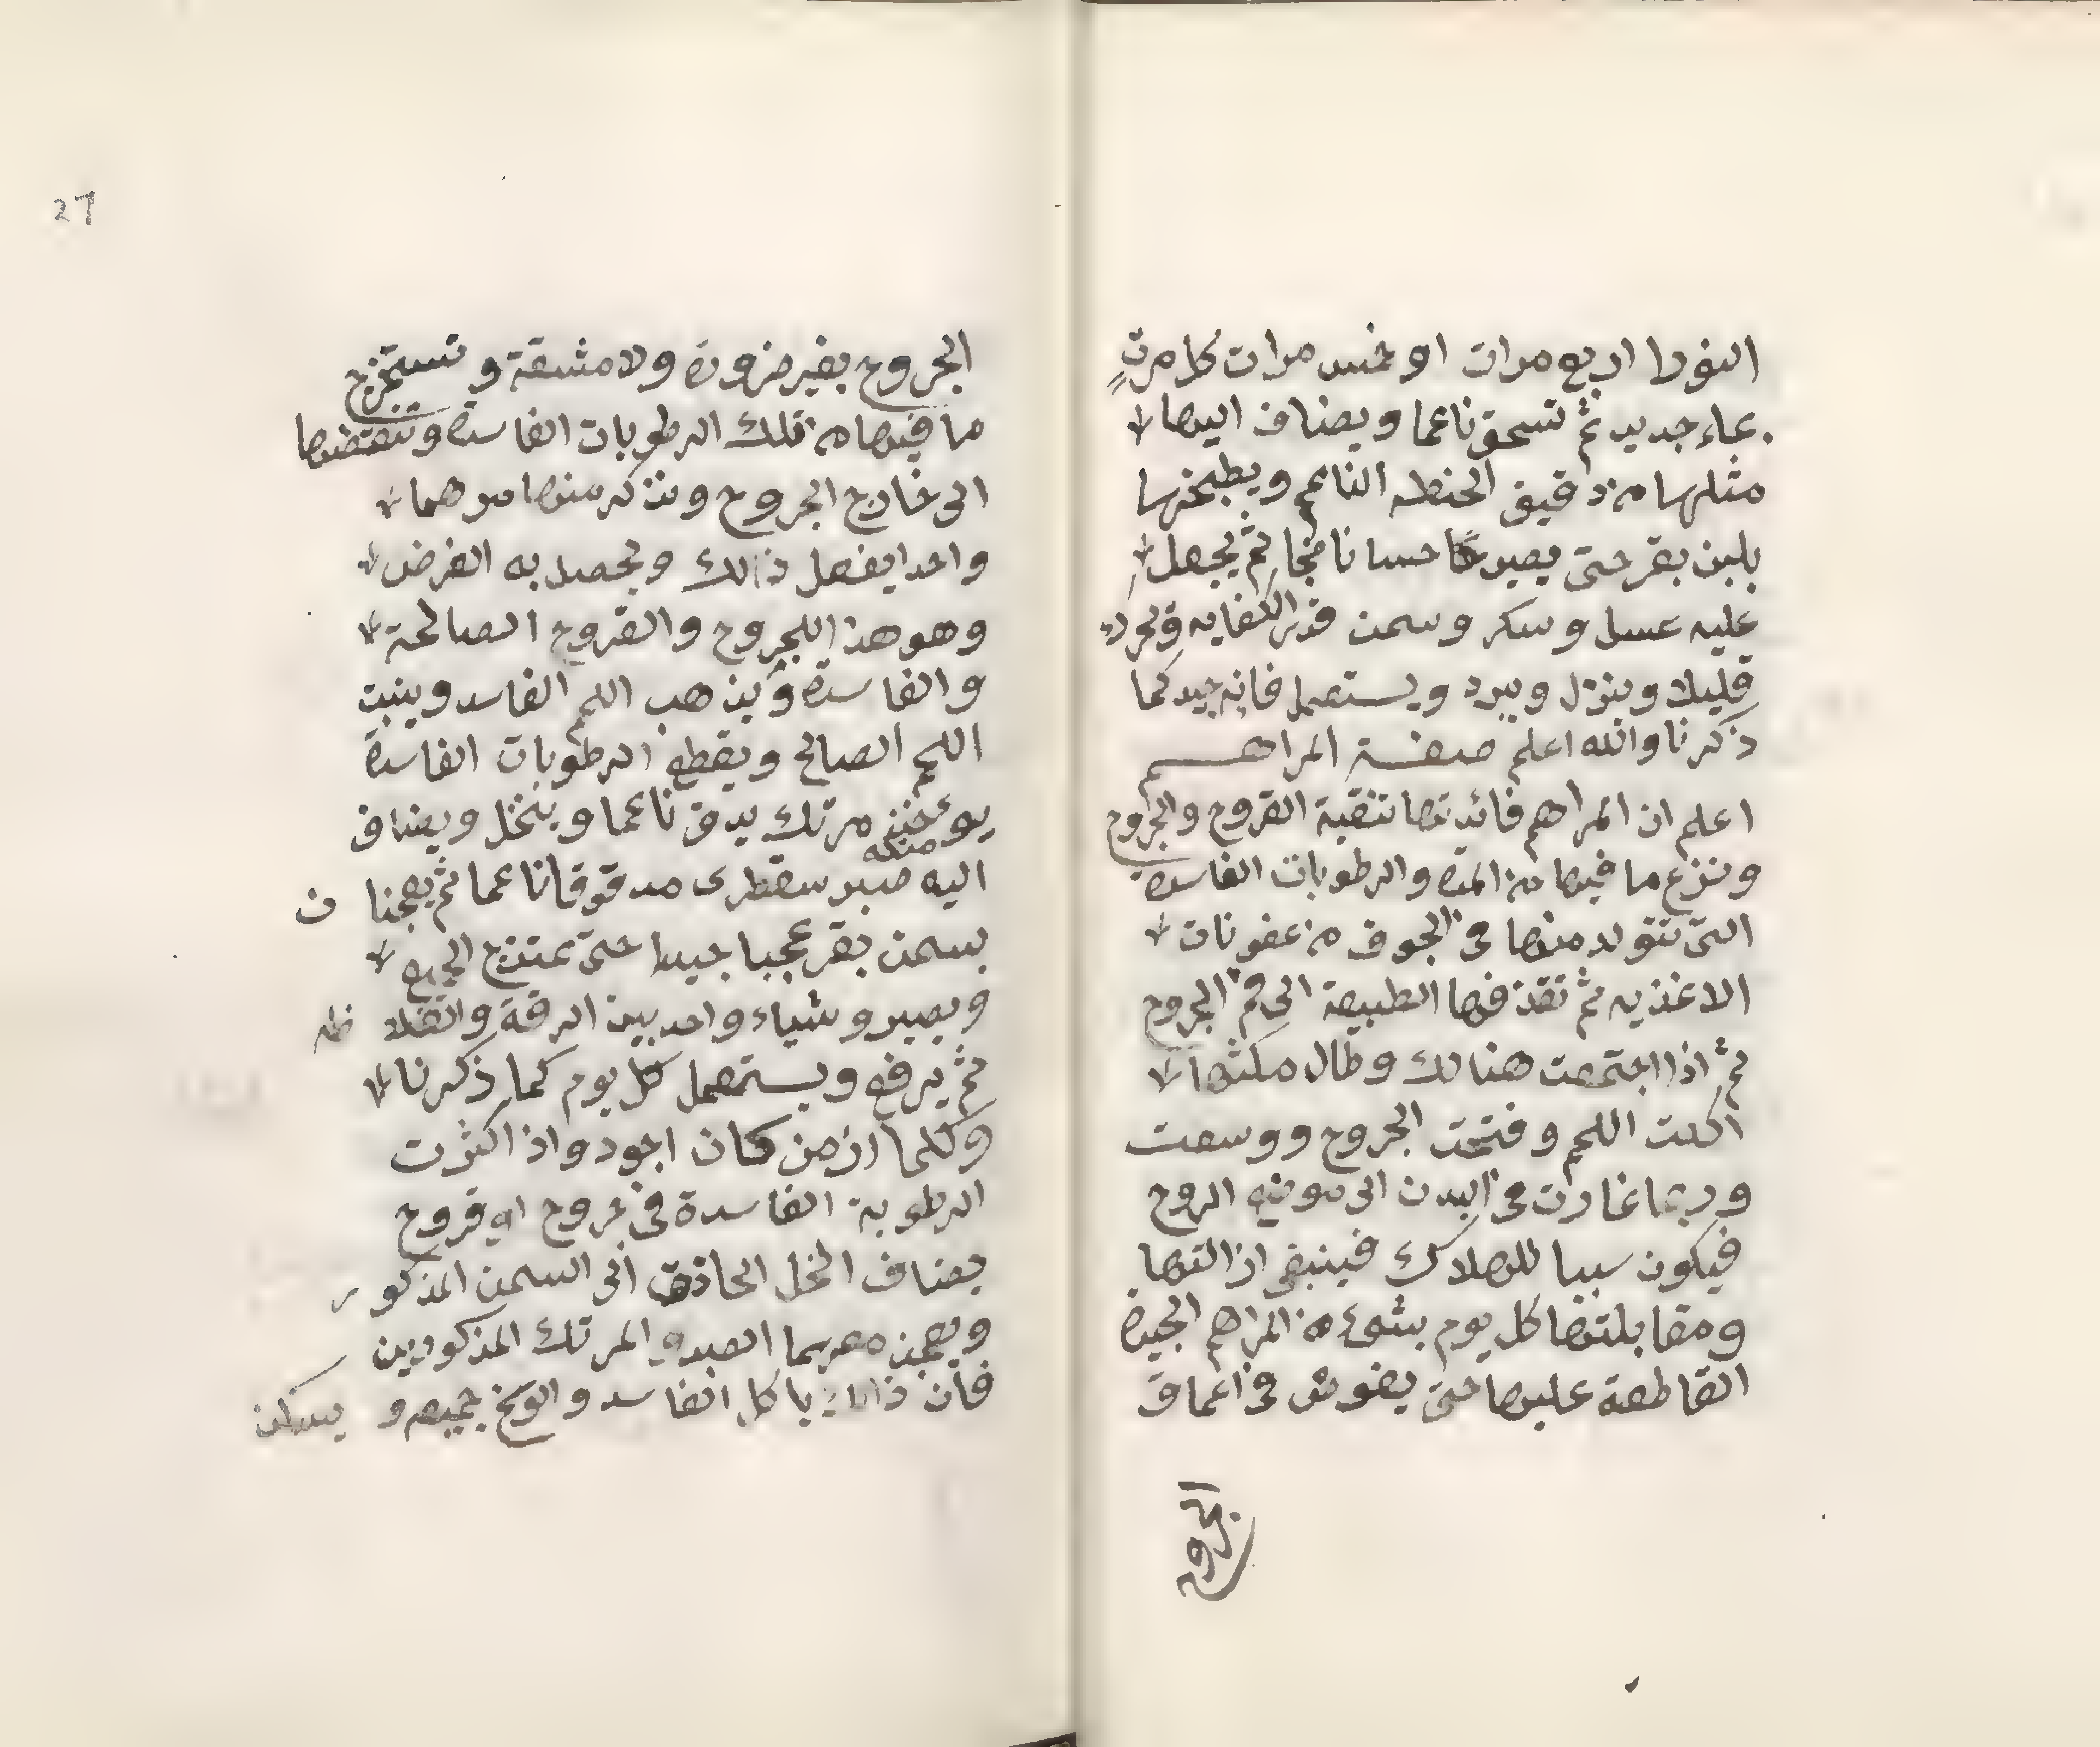 النورا اربع مرات او خمس مرات كل مرت
بماء جديد ثم تسحق ناعما ويضاف اليها
مثلها من دقيق الحنطه الناعم ويطبخها
بلبن بقر حتى يصير حسا ناضجا ثم يجعل
عليه عسل وسكر وسمن قدر الكفايه ويحرك
قليلا وينزل ويبرد ويستعمل فانه جيد كما
ذكرنا والله اعلم صفة المراهم
اعلم ان المراهم فائدتها تنقية القروح والجروح
ونزع ما فيها من المدة والرطوبات الفاسدة
التى تتولد منها فى الجوف من عفونات
الاغذيه ثم تقذفها الطبيعة الى فم الجروح
ثم اذا اجتمعت هنالك وطال مكثها
اكلت اللحم وفتحت الجروح ووسعت
وربما غارت فى البدن الى موضع الروح
فيكون سببا للهلاك فينبغى ازالتها
ومقابلتها كل يوم بشىء من المراهم الجيدة
القاطعة عليها حتى يغوش فى اعماق
الجروح
27
الجروح بغير ضرورة ولا مشقة وتستخرج
ما فيها من تلك الرطوبات الفاسدة وتنقضها
الى خارج الجروح ونذكر منها مرهما
واحدا يفعل ذالك ويحصل به الغرض
وهو هذا للجروح والقروح الصالحة
والفاسدة ويذهب اللحم الفاسد وينبت
اللحم الصالح ويقطع الرطوبات الفاسدة
يوءخذ مرتك يدق ناعما وينخل ويضاف
مثله
اليه صبر سقطرى مدقوقا ناعما ثم يعجنا ن
بسمن بقر عجبا جيدا حتى يمتزج الجميع
ويصيرو شياء واحد بين الرقة والغلا ظه
ثم يرفع ويستعمل كل يوم كما ذكرنا
وكلما ازمن كان اجود واذا كثرت
الرطوبة الفاسدة فى جروح او قروح
يضاف الخل الحاذق الى السمن المذكور
ويعجن معهما الصبر والمرتك المذكورين
فان ذالك ياكل الفاسد والوسخ جميعه و يسكن